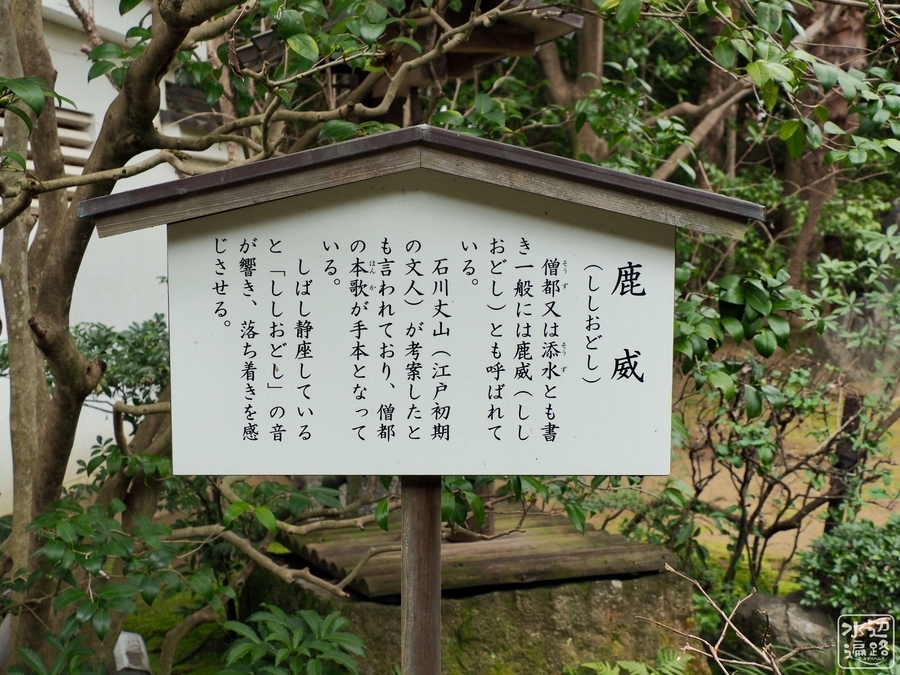 鹿威
（ししおどし）
僧都又は添水とも書
き一般には鹿威（しし
おどし）とも呼ばれて
いる。
石川丈山（江戸初期
の文人）が考案したと
も言われており、僧都
の本歌が手本となって
いる。
しばし静座している
と「ししおどし」の音
が響き、落ち着きを感
じさせる。
水辺遍路